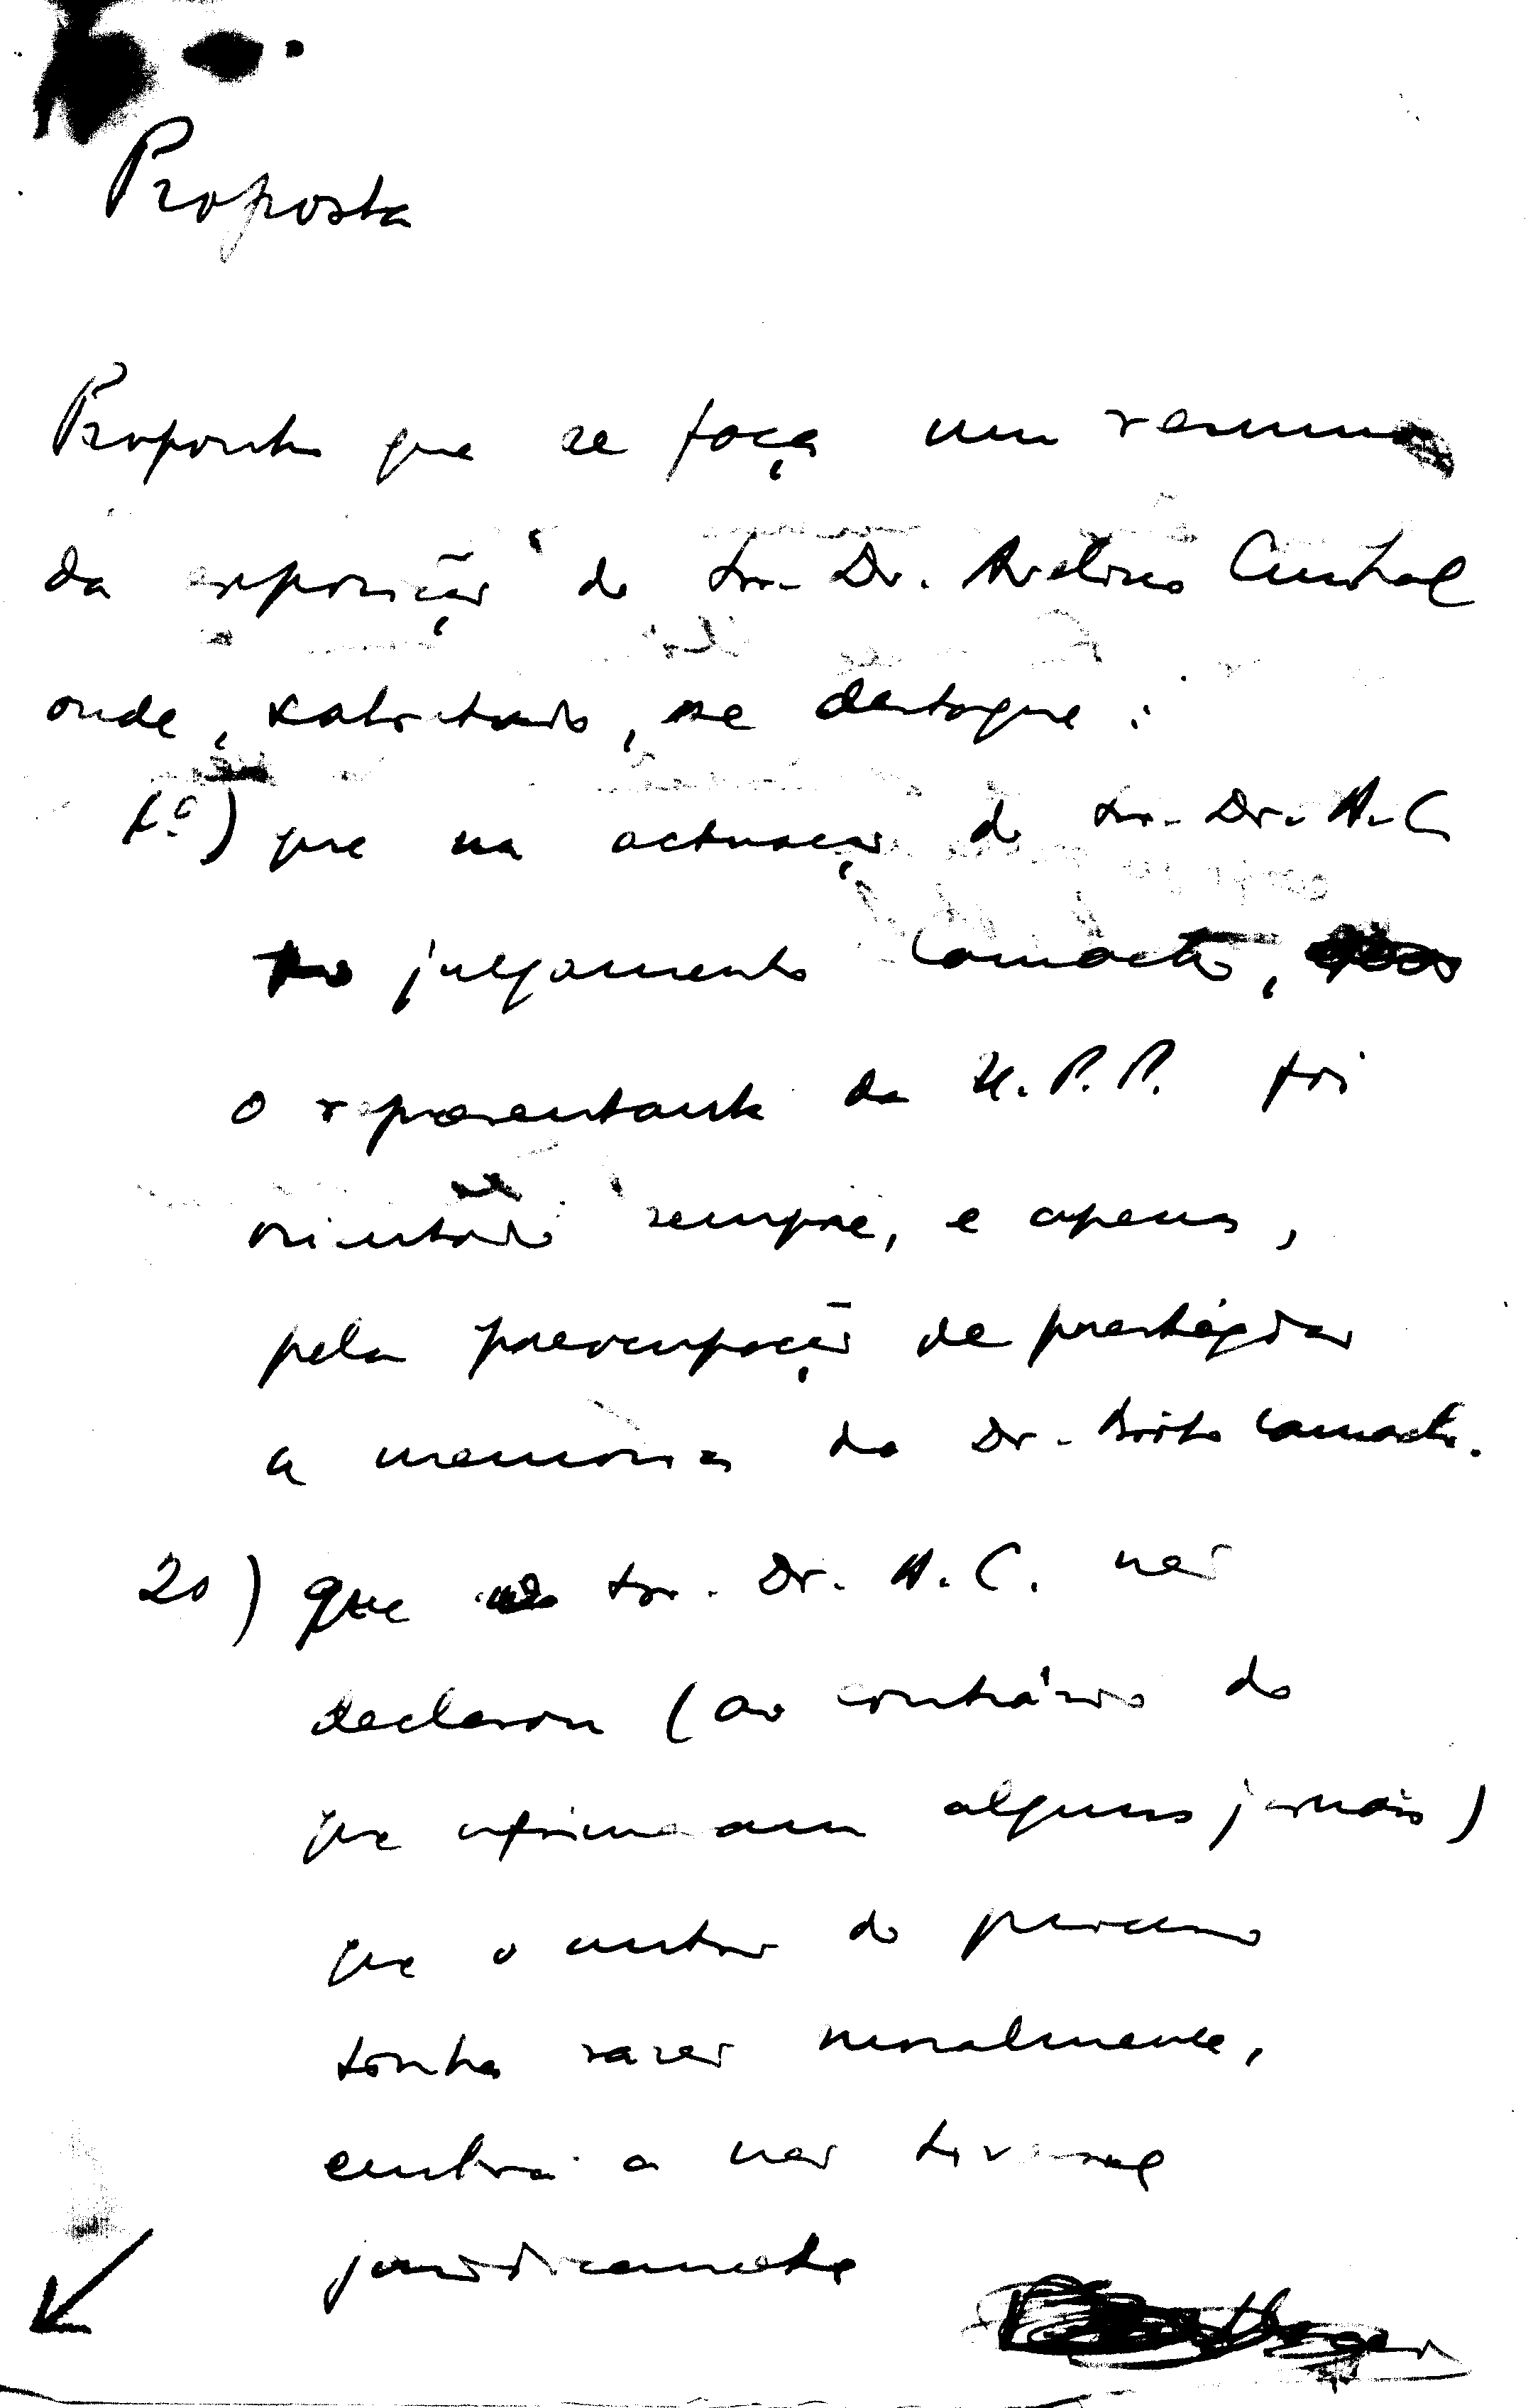 Proposta
Proponho que se faça um resumo
da exposição do Snr. Dr. Avelino Cunhal
onde, sobretudo, se destaque:
1.º) que na actuação do Snr. Dr. A. C.
no julgamento Camacho,
o representante da U.P.P. foi
orientado sempre, e apenas,
pela preocupação de prestigiar
a memória do Dr. Brito Camacho.
2o) que o Snr. Dr. A. C. não
declarou (ao contrário do
que afirmaram alguns jornais)
que o autor do processo
tinha razão moralmente,
embora a não tivesse
juridicamente